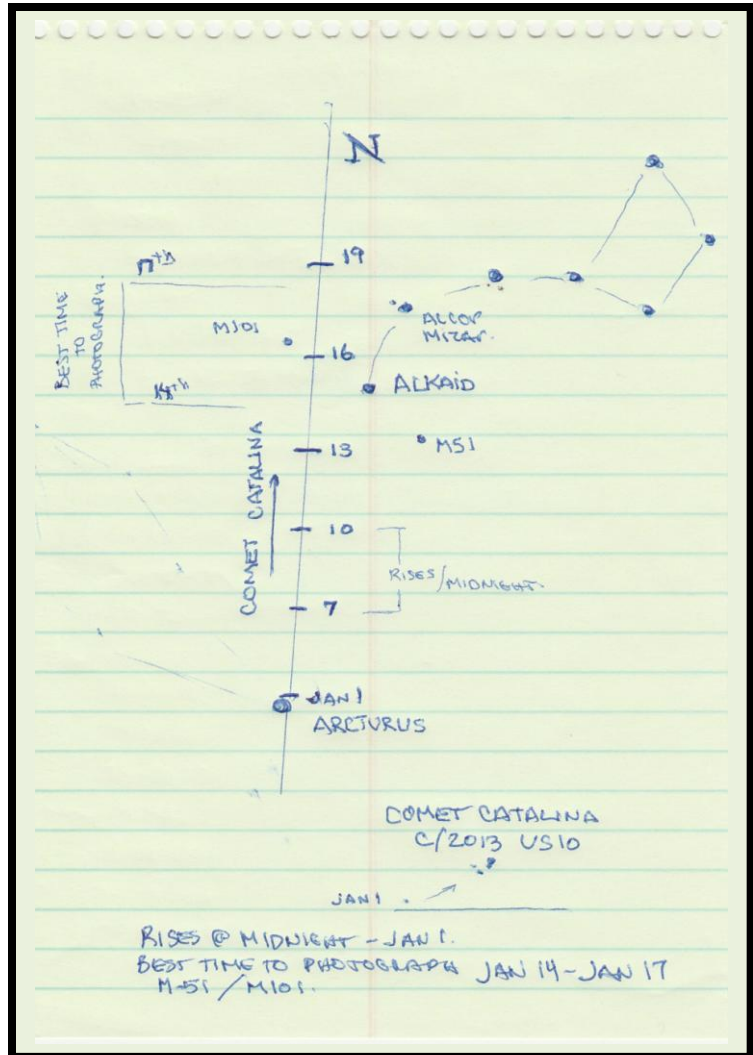 N
19
17th
BEST TIME
TO
PHOTOGRAPH.
M101
ALCOR
MIZAR.
16
ALKAID
13
M51
COMET CATALINA
10
RISES/MIDNIGHT.
7
JAN 1
ARCTURUS
COMET CATALINA
C/2013 US10
JAN 1
RISES @ MIDNIGHT - JAN 1.
BEST TIME TO PHOTOGRAPH JAN 14-JAN 17
M-51/M101.